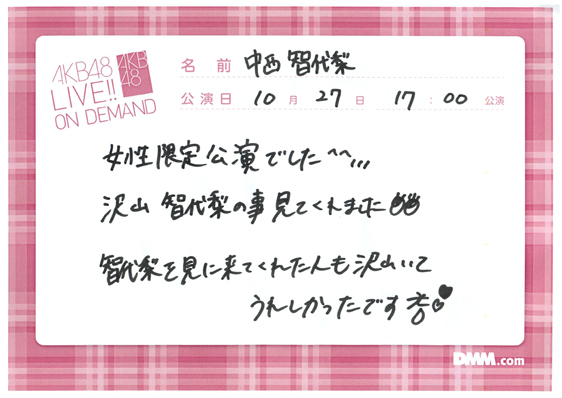 AKB48
LIVE!!
ON DEMAND
AKB
48
名前 中西 智代梨
公演日 10月 27日 17:00 公演
女性限定公演でした^^,,,
沢山 智代梨の事見てくれました
智代梨を見に来てくれた人も沢山いて
うれしかったです
DMM.com